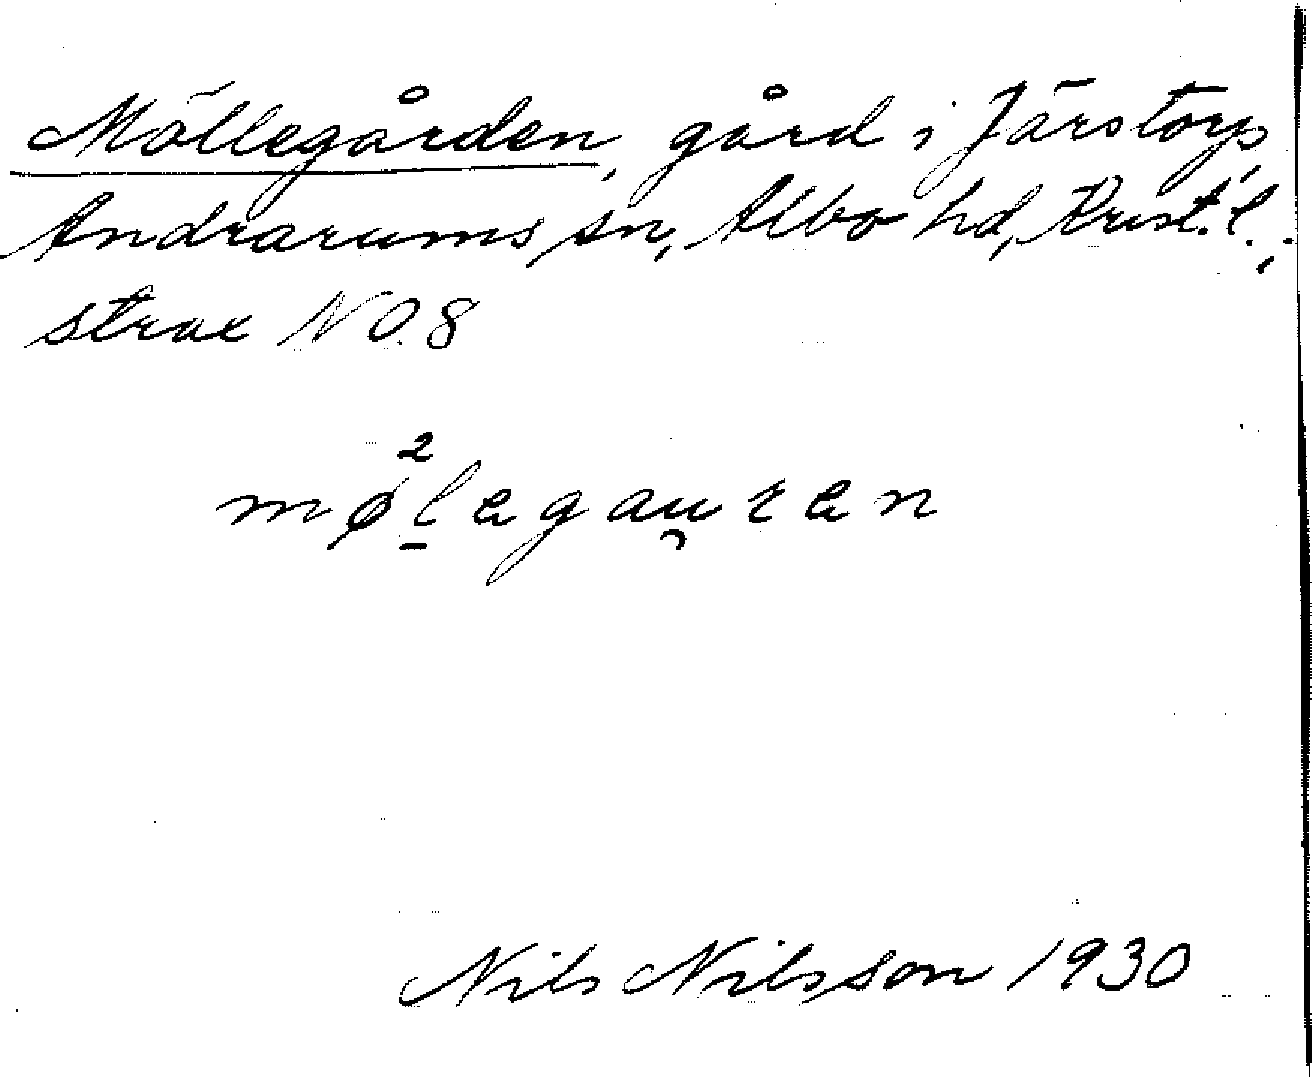 Möllegården, gård i Järstorp,
Andrarums sn, Albo hd, Krist. l.;
strax NO. 8
mø²l̠egau̯ren
Nils Nilsson 1930